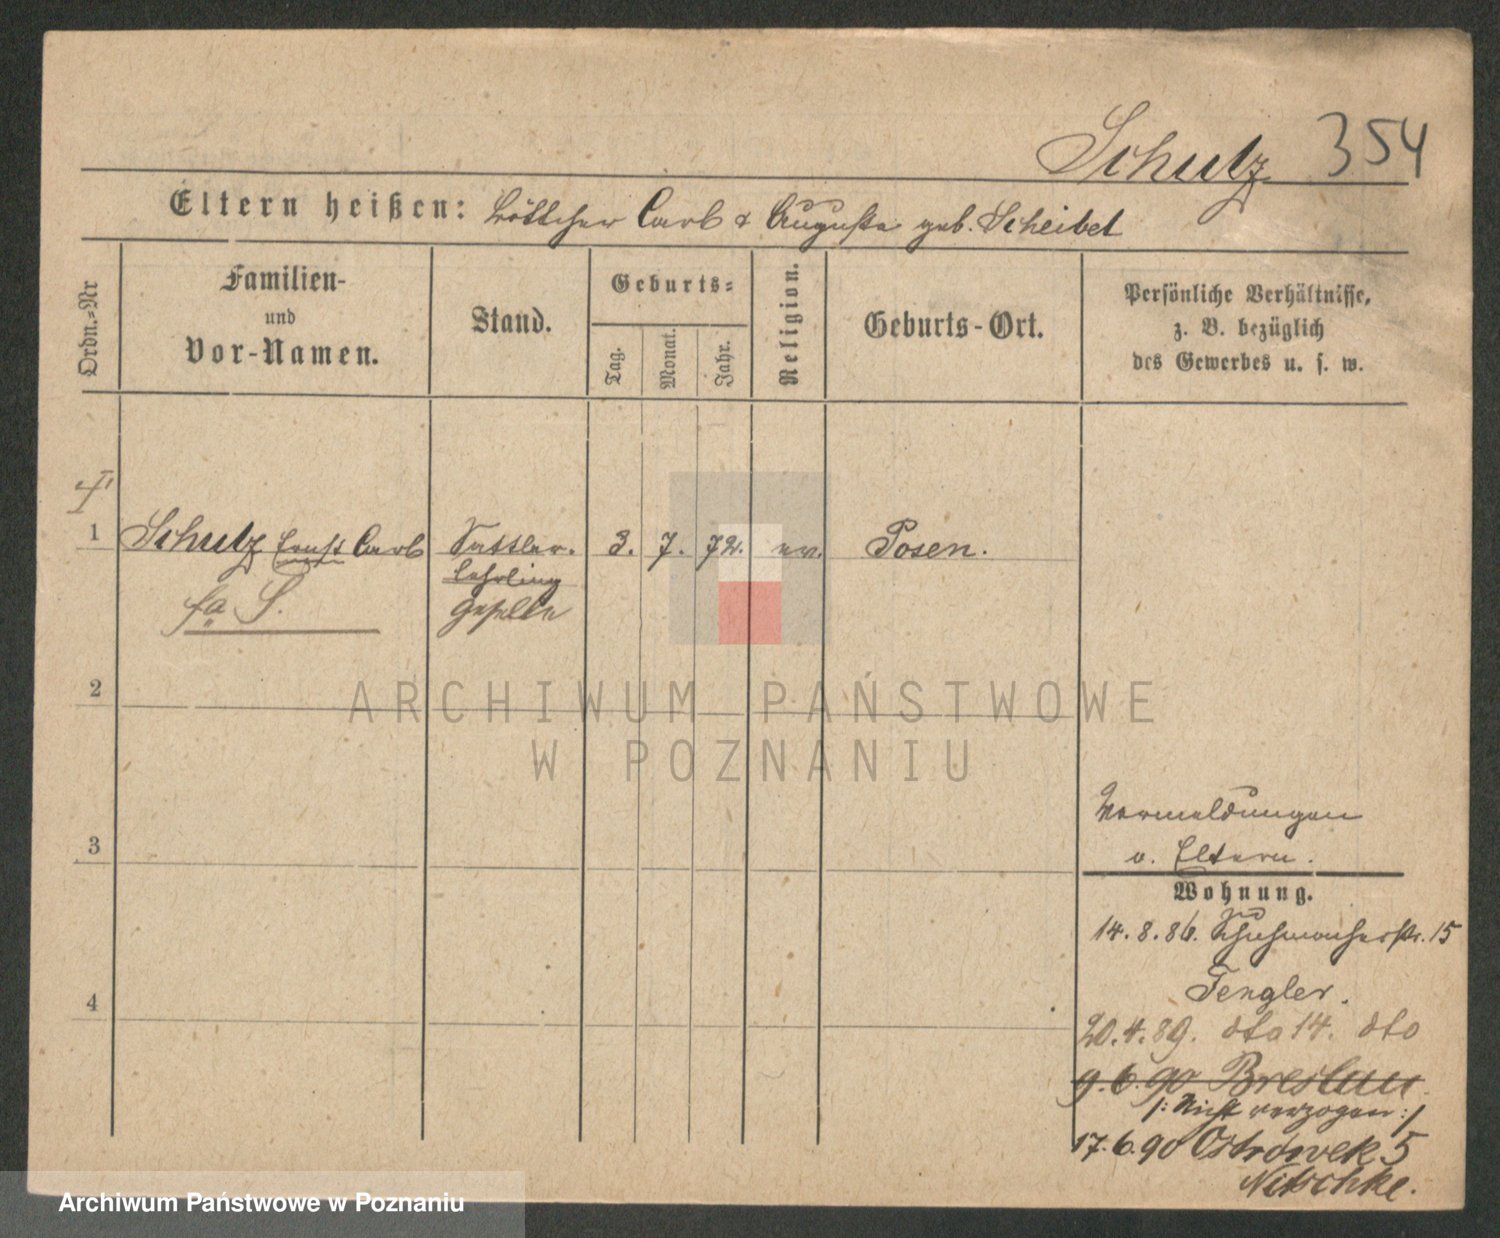 Schulz 354
Eltern heißen: Böttcher Carl & Auguste geb. Scheibel
Ordn.-Nr
Familien-
und
Vor-Namen.
Stand.
Geburts-
Tag.
Monat.
Jahr.
Religion.
Geburts-Ort.
Persönliche Verhältnisse,
z. B. bezüglich
des Gewerbes u. s. w.
1 Schulz Ernst Carl Sattler- 3. 7. 72. ev. Posen.
lehrling
geselle
fa S.
2
3
4
ARCHIWUM PAŃSTWOWE
W POZNANIU
Vermeldungen
v. Eltern.
Wohnung.
14. 8. 86. Schuhmacherstr. 15
Fengler.
20. 4. 89. dto 14. dto
9. 6. 90 Breslau
/: Nicht verzogen :/
17. 6. 90 Ostrówek 5
Nitschke.
Archiwum Państwowe w Poznaniu